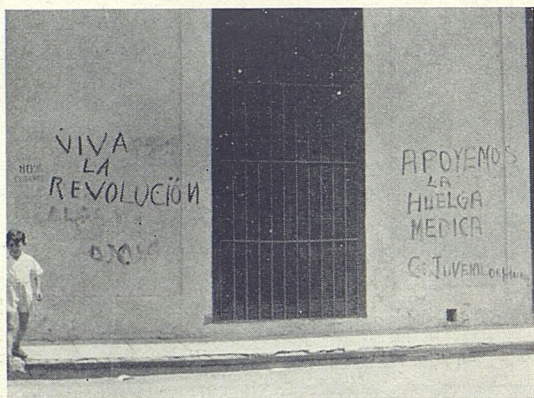 VIVA
LA
REVOLUCIÓN
APOYEMOS
LA
HUELGA
MEDICA
C. JUVENIL